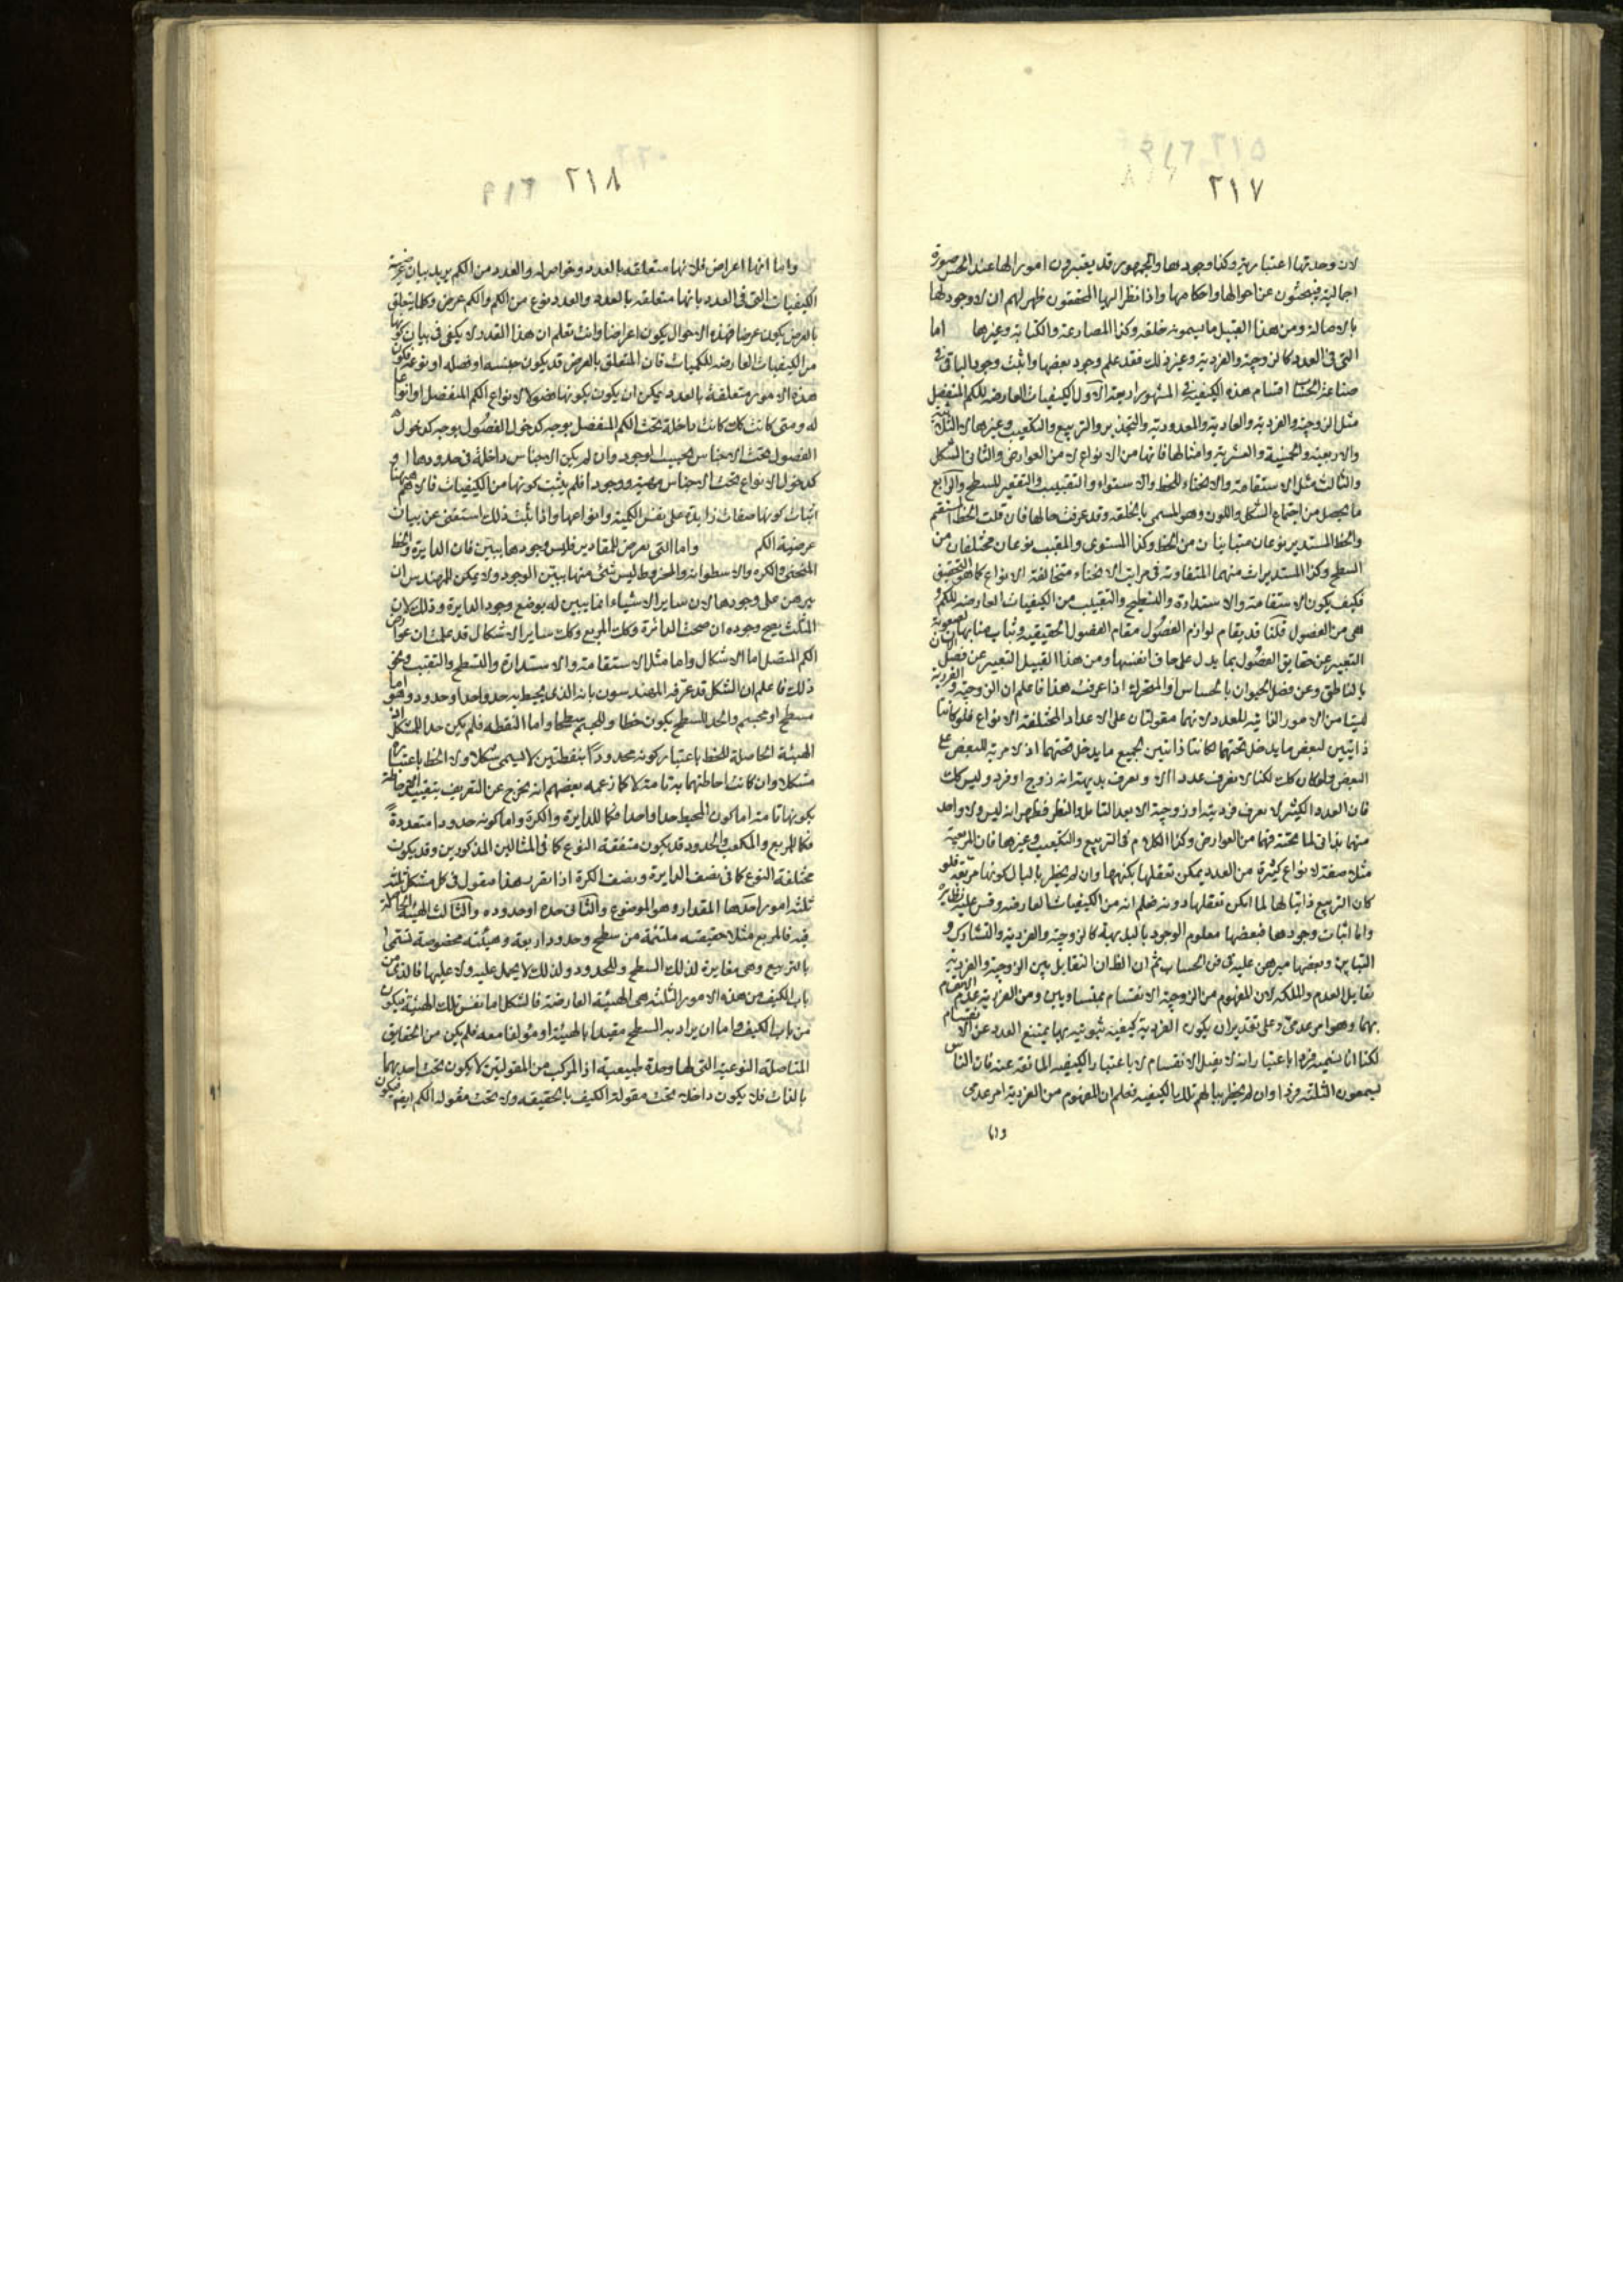 ٢١٧
لان وحدتها اعتبارية وكذا وجودها والجمهور قد يعتبرون امورا لها عند الحس صورة
اجمالية فيبحثون عن احوالها واحكامها واذا نظر اليها المحققون ظهر لهم ان لا وجود لها
بالاصالة ومن هذا القبيل ما يسمونه خلقه وكذا المصارعة والكتابة وغيرها اما
التى فى العدد كالزوجية والفردية وغير ذلك فقد علم وجود بعضها واثبت وجود الباقى فى
صناعة الحساب اقسام هذه الكيفية فى المشهور اربعة الاول الكيفيات العارضه للكم المنفصل
مثل الزوجية والفردية والعادية والمعدودية والتجذير والتربيع والتكعيب وغيرها كالثلاثية
والاربعية والخمسية والعشرية وامثالها فانها من الانواع لا من العوارض والثانى الشكل
والثالث مثل الاستقامة والانحناء للخط والاستواء والتقبيب والتقعير للسطح والرابع
ما يحصل من اجتماع الشكل واللون وهو المسمى بالخلقه وقد عرفت حالها فان قلت الخط المستقيم
والخط المستدير نوعان متباينان من الخط وكذا المستوى والمقبب نوعان مختلفان من
السطح وكذا المستديرات منهما المتفاوته فى مراتب الانحناء متخالفة الانواع كما هو التحقيق
فكيف يكون الاستقامة والاستدارة والتسطيح والتقبيب من الكيفيات العارضه للكم و
هى من الفصول قلنا قد يقام لوازم الفصول مقام الفصول الحقيقيه وثبات منابها لصعوبة
التعبير عن حقايق الفصول بما يدل على حاق انفسها ومن هذا القبيل التعبير عن فصل الانسان
بالناطق وعن فصل الحيوان بالحساس او المتحرك اذا عرفت هذا فاعلم ان الزوجية والفردية
ليستا من الامور الذاتية للعدد لانهما مقولتان على الاعداد المختلفة الانواع فلو كانتا
ذاتيتين لبعض ما يدخل تحتهما لكانتا ذاتيتين لجميع ما يدخل تحتهما اذ لا مزية للبعض على
البعض ولو كان كذلك لكنا لا نعرف عددا الا ونعرف بديهة انه زوج او فرد وليس كذلك
فان العدد الكثير لا يعرف فرديته او زوجيته الا بعد التامل والنظر فظهر انه ليس ولا واحد
منهما بذاتى لما تحته فهما من العوارض وكذا الكلام فى التربيع والتكعيب وغيرها فان المربعية
مثلا صفة لانواع كثيرة من العدد يمكن تعقلها بكنهها وان لم يخطر بالبال كونها مربعة فلو
كان التربيع ذاتيا لها لما امكن تعقلها دونه فعلم انه من الكيفيات العارضه وقس عليه نظايره
واما اثبات وجودها فبعضها معلوم الوجود بالبديهية كالزوجية والفردية والتشارك و
التباين وبعضها مبرهن عليه فى فن الحساب ثم ان الظان التقابل بين الزوجية والفردية
تقابل العدم والملكة لان المفهوم من الزوجية الانقسام بمتساويين ومن الفردية عدم الانقسام
بهما وهو امر عدمى وعلى تقدير ان يكون الفردية كيفية ثبوتية بها يمتنع العدد عن الانقسام
لكنا انا نسميه فردا باعتبار انه لا يقبل الانقسام لا باعتبار الكيفيه المانعة عنه فان الناس
يسمعون الثلثه فردا وان لم يخطر ببالهم تلك الكيفيه فعلم ان المفهوم من الفردية امر عدمى
واما
٢١٨
واما انها اعراض فلانها متعلقه بالعدد وخواص له والعدد من الكم يريد بيان عرضية
الكيفيات التى فى العدد بانها متعلقه بالعدد والعدد نوع من الكم والكم عرض وكلما يتعلق
بالعرض يكون عرضا فهذه الاحوال يكون اعراضا وانت تعلم ان هذا القدر لا يكفى فى بيان كونها
من الكيفيات العارضه للكميات فان المتعلق بالعرض قد يكون جنسه او فصله او نوعه فكون
هذه الامور متعلقة بالعدد يمكن ان يكون بكونها فصولا لانواع الكم المنفصل او انواعا
له ومتى كانت كذلك كانت داخلة تحت الكم المنفصل بوجه كدخول الفصول بوجه كدخول
الفصول تحت الاجناس بحسب الوجود وان لم يكن الاجناس داخلة فى حدودها او
كدخول الانواع تحت الاجناس مهية ووجودا فلم يثبت كونها من الكيفيات فالاهم ههنا
اثبات كونها صفات زايدة على نفس الكمية وانواعها واذا ثبت ذلك استغنى عن بيان
عرضية الكم واما التى تعرض للمقادير فليس وجودها ببين فان الدايرة والخط
المنحنى والكره والاسطوانه والمخروط ليس شئ منها ببين الوجود ولا يمكن للمهندس ان
يبرهن على وجودها لان ساير الاشياء انما يبين له بوضع وجود الدايرة وذلك لان
المثلث يصح وجوده ان صحت الدائرة وكذلك المربع وكذلك ساير الاشكال قد علمت ان عوارض
الكم المتصل اما الاشكال واما مثل الاستقامة والاستدارة والتسطيح والتقبيب ونحو
ذلك فاعلم ان الشكل قد عرفه المهندسون بانه الذى يحيط به حد واحد او حدود وهو اما
مسطح او مجسم والحد للسطح يكون خطا وللجسم سطحا واما النقطه فلم يكن حدا للشكل اذ
الهيئة الحاصلة للخط باعتبار كونه محدودا بنقطتين لا يسمى شكلا ولا الخط باعتبارها
مشكلا وان كانت احاطتهما به تامة لا كما زعمه بعضهم انه يخرج عن التعريف بتقييد الاحاطة
بكونها تامة اما كون المحيط حدا واحدا فكما للدايرة والكرة واما كونه حدودا متعددة
فكما للمربع والمكعب والحدود قد يكون متفقة النوع كما فى المثالين المذكورين وقد يكون
مختلفة النوع كما فى نصف الدايرة ونصف الكرة اذا تقرر هذا فنقول فى كل مشكل ثلثة
ثلثة امور احدها المقدار وهو الموضوع والثانى حده او حدوده والثالث الهيئة الحاصلة
فيه فالمربع مثلا حقيقته ملتئمة من سطح وحدود اربعة وهيئته مخصوصة تسمى
بالتربيع وهى مغايرة لذلك السطح وللحدود ولذلك لا يحمل عليه ولا عليها فالذى من
باب الكيف من هذه الامور الثلثه هى الهيئة العارضة فالشكل اما نفس تلك الهيئة فيكون
من باب الكيف واما ان يراد به السطح مقيدا بالهيئة او مؤلفا معه فلم يكن من الحقايق
المتاصلة النوعية التى لها وحدة طبيعية اذ المركب من المقولتين لا يكون تحت احديهما
بالذات فلا يكون داخلا تحت مقولة الكيف بالحقيقه ولا تحت مقوله الكم ايضا فيكون